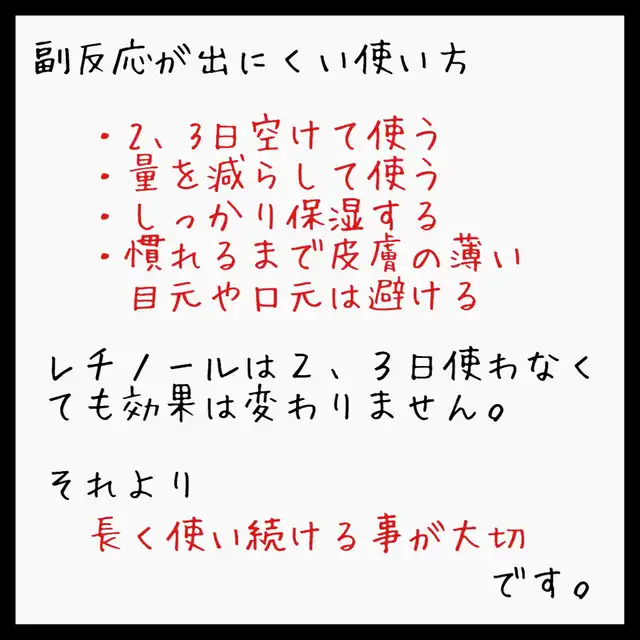 副反応が出にくい使い方
・2、3日空けて使う
・量を減らして使う
・しっかり保湿する
・慣れるまで皮膚の薄い
目元や口元は避ける
レチノールは2、3日使わなく
ても効果は変わりません。
それより
長く使い続ける事が大切
です。